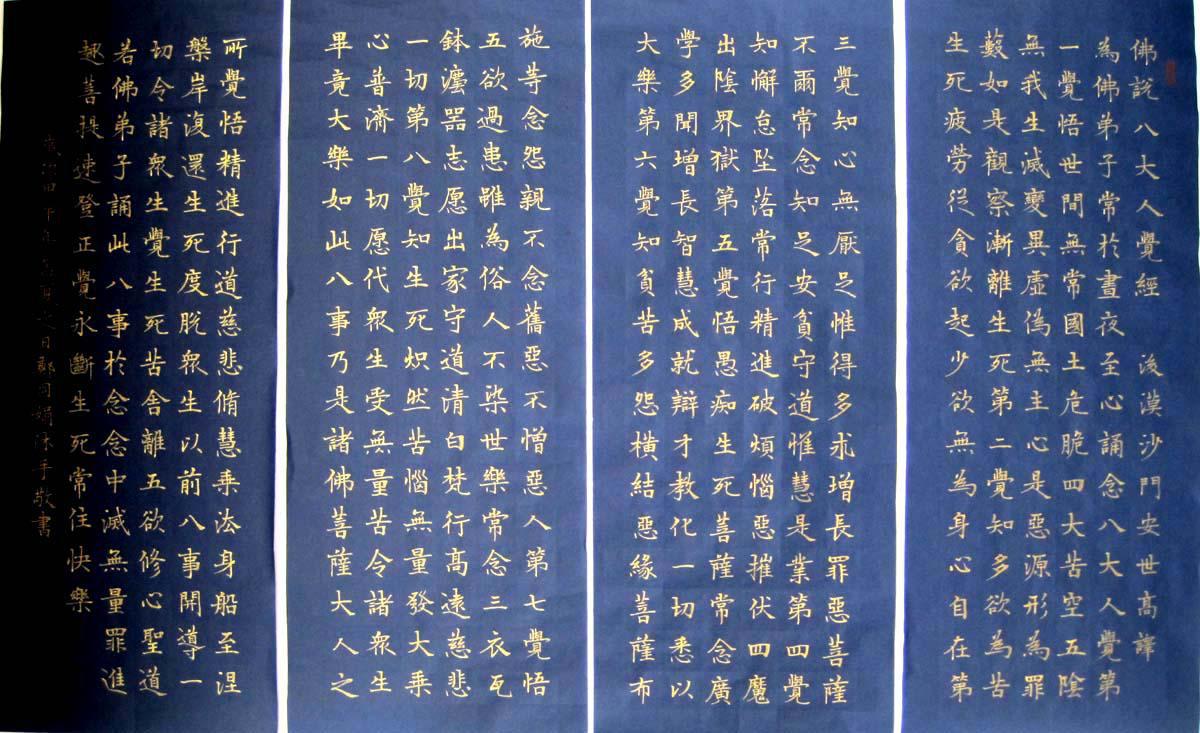 佛說八大人覺經 後漢沙門安世高譯
為佛弟子常於晝夜至心誦念八大人覺第
一覺悟世間無常國土危脆四大苦空五陰
無我生滅變異虛偽無主心是惡源形為罪
藪如是觀察漸離生死第二覺知多欲為苦
生死疲勞從貪欲起少欲無為身心自在第
三覺知心無厭足惟得多求增長罪惡菩薩
不爾常念知足安貧守道惟慧是業第四覺
知懈怠坠落常行精進破煩惱惡摧伏四魔
出陰界獄第五覺悟愚痴生死菩薩常念廣
學多聞增長智慧成就辯才教化一切悉以
大樂第六覺知貧苦多怨橫結惡緣菩薩布
施等念怨親不念舊惡不憎惡人第七覺悟
五欲過患雖為俗人不染世樂常念三衣瓦
鉢瀍器志愿出家守道清白梵行高遠慈悲
一切第八覺知生死炽然苦惱無量發大乘
心普濟一切愿代眾生受無量苦令諸眾生
畢竟大樂如此八事乃是諸佛菩薩大人之
所覺悟精進行道慈悲脩慧乘法身船至涅
槃岸復還生死度脫眾生以前八事開導一
切令諸眾生覺生死苦舍離五欲修心聖道
若佛弟子誦此八事於念念中滅無量罪進
趣菩提速登正覺永斷生死常住快樂
甲午年之日沐手敬書